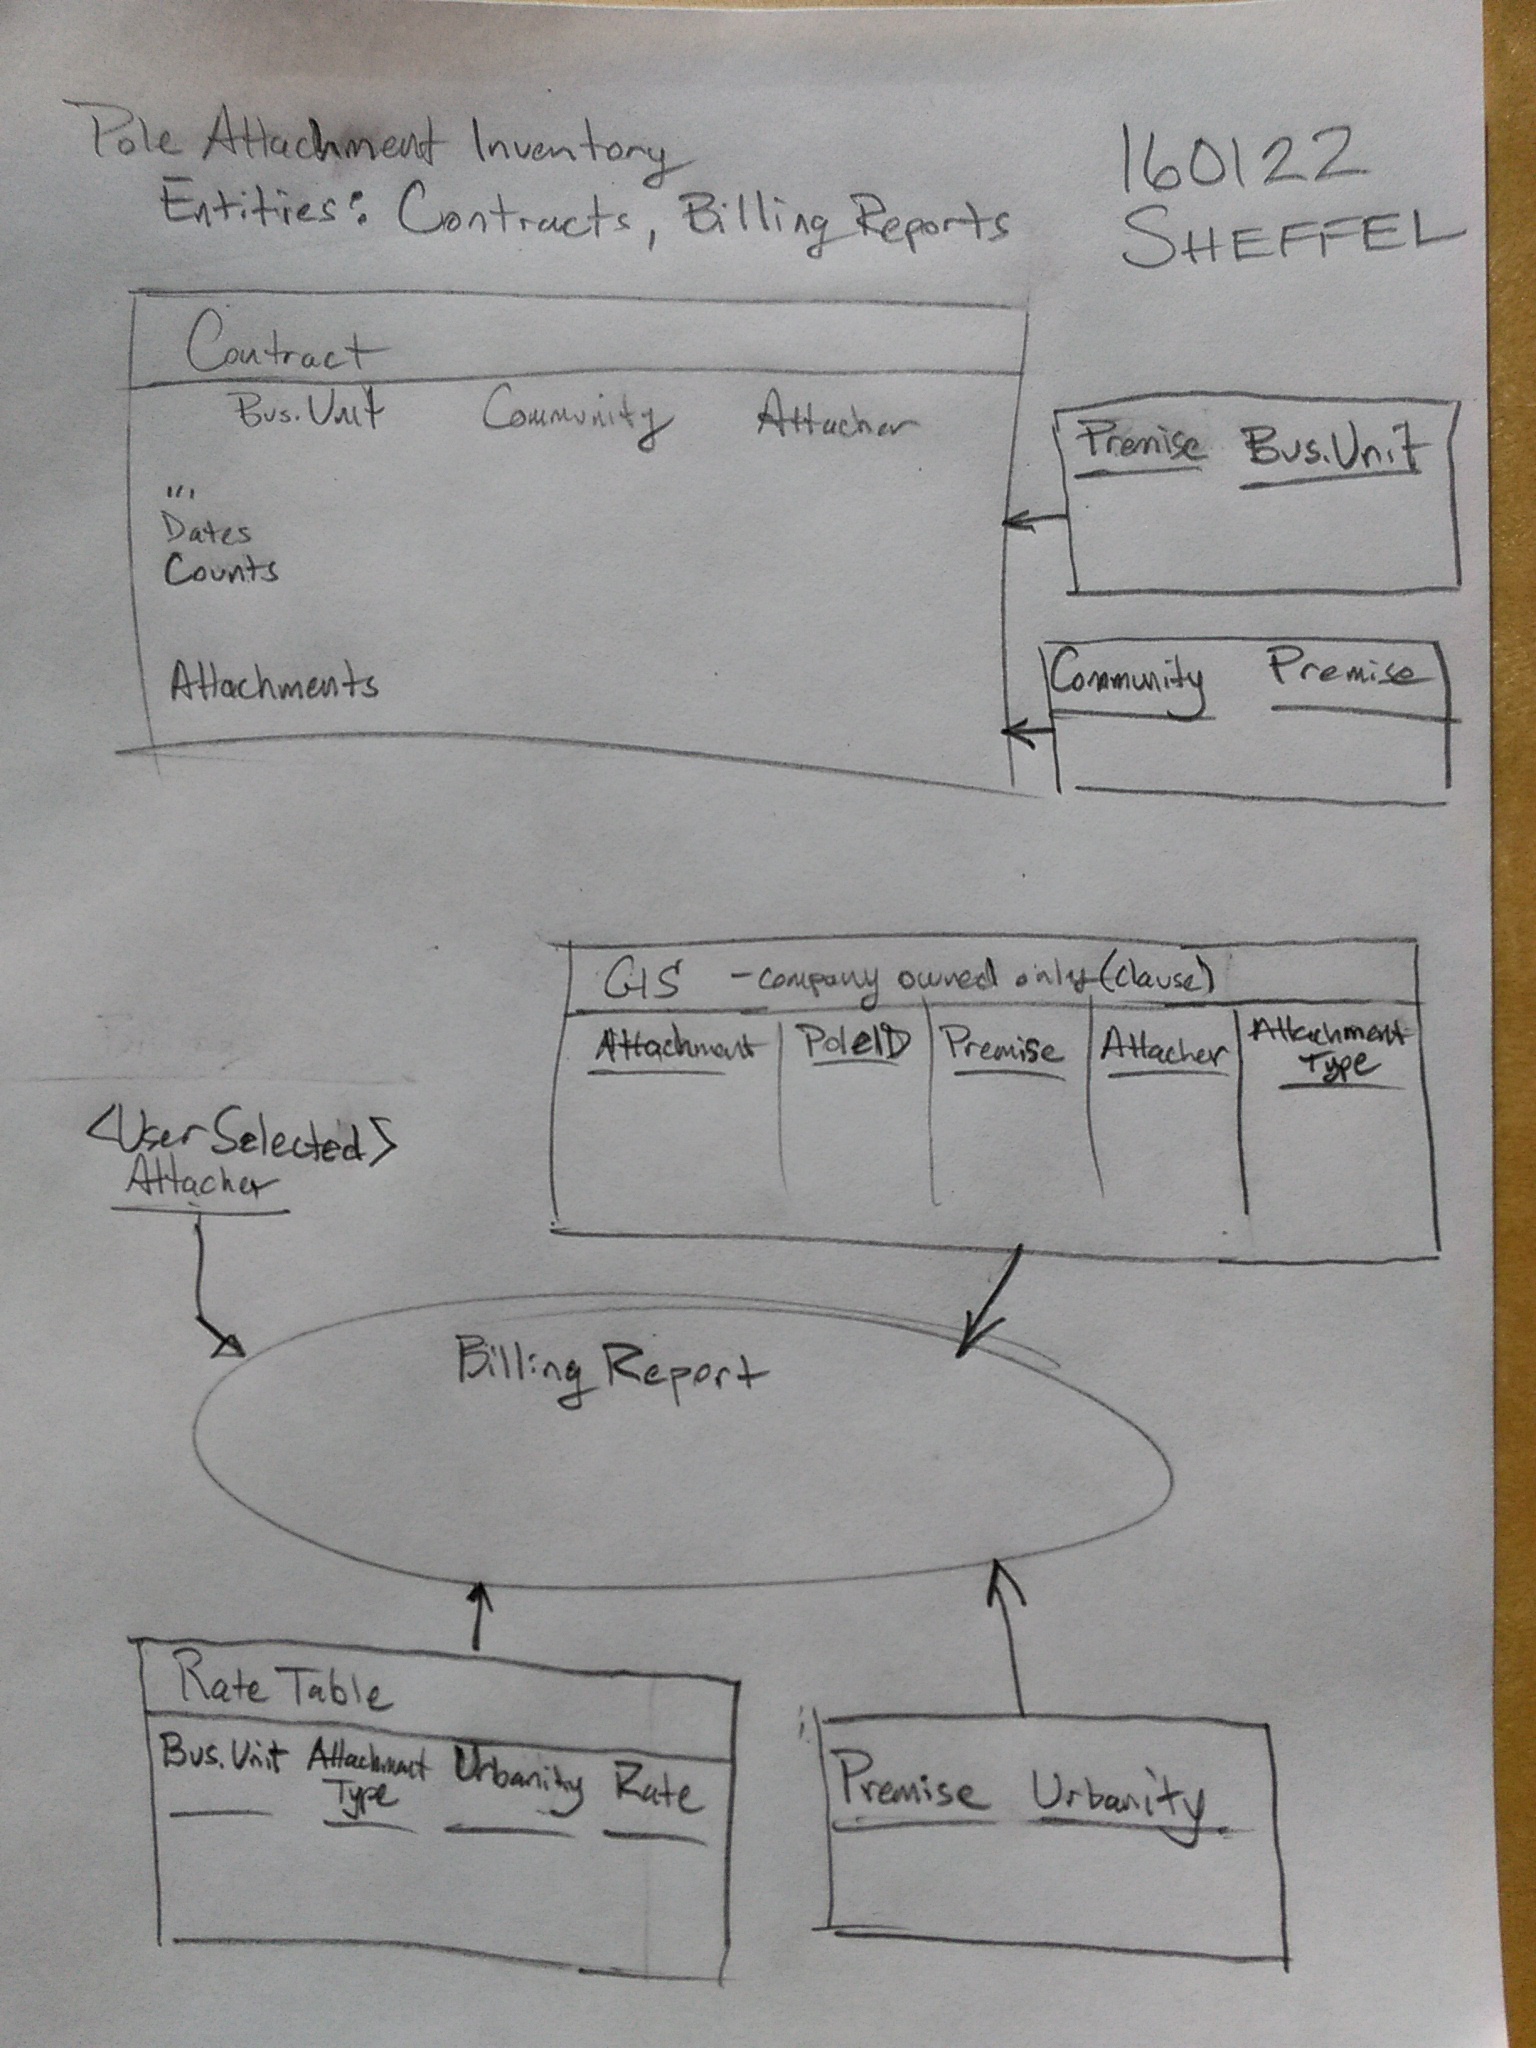 Pole Attachment Inventory
Entities: Contracts, Billing Reports
160122
SHEFFEL
Contract
Bus.Unit Community Attacher
...
Dates
Counts
Attachments
Premise Bus.Unit
Community Premise
GIS - company owned only (clause)
Attachment PoleID Premise Attacher Attachment Type
<User Selected>
Attacher
Billing Report
Rate Table
Bus.Unit Attachment Type Urbanity Rate
Premise Urbanity